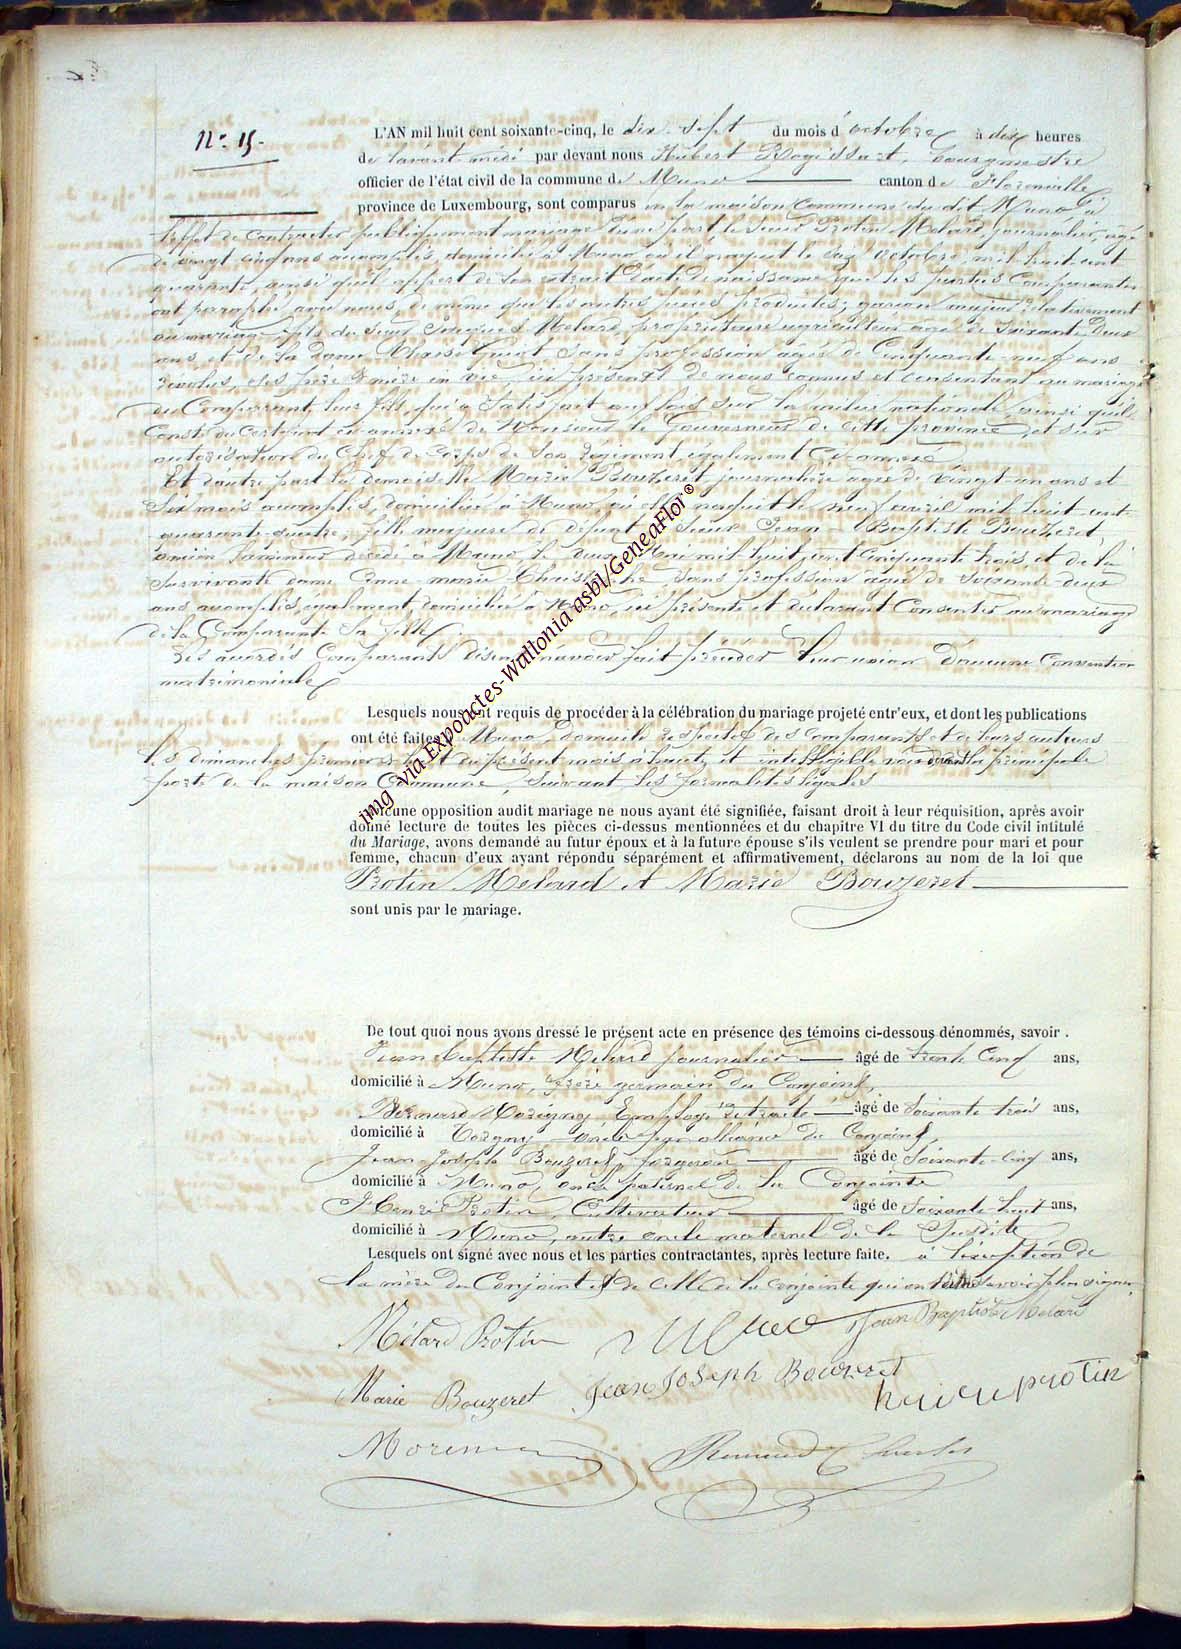 N° 15.
L'AN mil huit cent soixante-cinq, le dix-sept du mois d'octobre à dix heures
de l'avant midi par devant nous Hubert Bourgmestre
officier de l'état civil de la commune de Muno canton de Florenville
province de Luxembourg, sont comparus en la maison Commune du dit Muno à
l'effet de contracter publiquement mariage d'une part le sieur Protin Melard, journalier, âgé
de vingt cinq ans accomplis, domicilié à Muno, où il naquit le dix octobre, mil huit cent
quarante, ainsi qu'il appert de son extrait d'acte de naissance que les parties Comparantes
ont paraphé avec nous, de même que les autres pièces produites; garçon majeur relativement
au mariage, fils du sieur Jacques Melard, propriétaire agriculteur âgé de Soixante Deux
ans et de la dame Guiot, Sans profession âgée de Cinquante-neuf ans
révolus, ses père & mère en vie, ici présents de nous connus et consentant au mariage
du Comparant, leur fils, qui a Satisfait aux lois sur la milice nationale, ainsi qu'il
Conste du Certificat de Monsieur le Gouverneur de cette province, et sur
autorisation du Chef de Corps de Son régiment également
Et d'autre part la demoiselle Marie Bouzeret journalière âgée de vingt-un ans et
Six mois accomplis, domiciliée à Muno, où elle naquit le neuf avril mil huit cent
quarante-quatre, fille majeure de défunt Sieur Jean-Baptiste Bouzeret,
ancien décédé à Muno le deux Mai mil huit cent cinquante trois, et de la
Survivante dame Anne-marie Sans profession âgée de Soixante-deux
ans accomplis, également domiciliée à Muno, ici présente et déclarant Consentir au mariage
de la Comparante Sa fille
Les Comparants disent n'avoir fait précéder leur union d'aucune Convention
matrimoniale
Lesquels nous ont requis de procéder à la célébration du mariage projeté entr'eux, et dont les publications
ont été faites à Muno, Domicile respectif des Comparants et de leurs auteurs
les dimanches premier et huit du présent mois à haute et intelligible voix devant la principale
porte de la maison Commune, Suivant les formalités légales
Aucune opposition audit mariage ne nous ayant été signifiée, faisant droit à leur réquisition, après avoir
donné lecture de toutes les pièces ci-dessus mentionnées et du chapitre VI du titre du Code civil intitulé
du Mariage, avons demandé au futur époux et à la future épouse s'ils veulent se prendre pour mari et pour
femme, chacun d'eux ayant répondu séparément et affirmativement, déclarons au nom de la loi que
Protin Melard et Marie Bouzeret
sont unis par le mariage.
De tout quoi nous avons dressé le présent acte en présence des témoins ci-dessous dénommés, savoir.
Jean baptiste Melard journalier âgé de trente Cinq ans,
domicilié à Muno, frère germain du Conjoint,
Bernard Employé retraité âgé de Soixante trois ans,
domicilié à Torgny oncle par alliance du Conjoint,
Jean-Joseph Bouzeret, forgeron âgé de Soixante-Cinq ans,
domicilié à Muno, oncle paternel de la Conjointe
Henri Protin, Cultivateur âgé de Soixante-huit ans,
domicilié à Muno, autre oncle maternel de la Susdite
Lesquels ont signé avec nous et les parties contractantes, après lecture faite. à l'exception de
la mère du Conjoint et de celle de la conjointe qui ont savoir signer
Mélard Protin Jean Baptiste Melard
Marie Bouzeret Jean Joseph Bouzeret henri protin
img via Expoactes-Wallonia asbl/GeneaFlor©